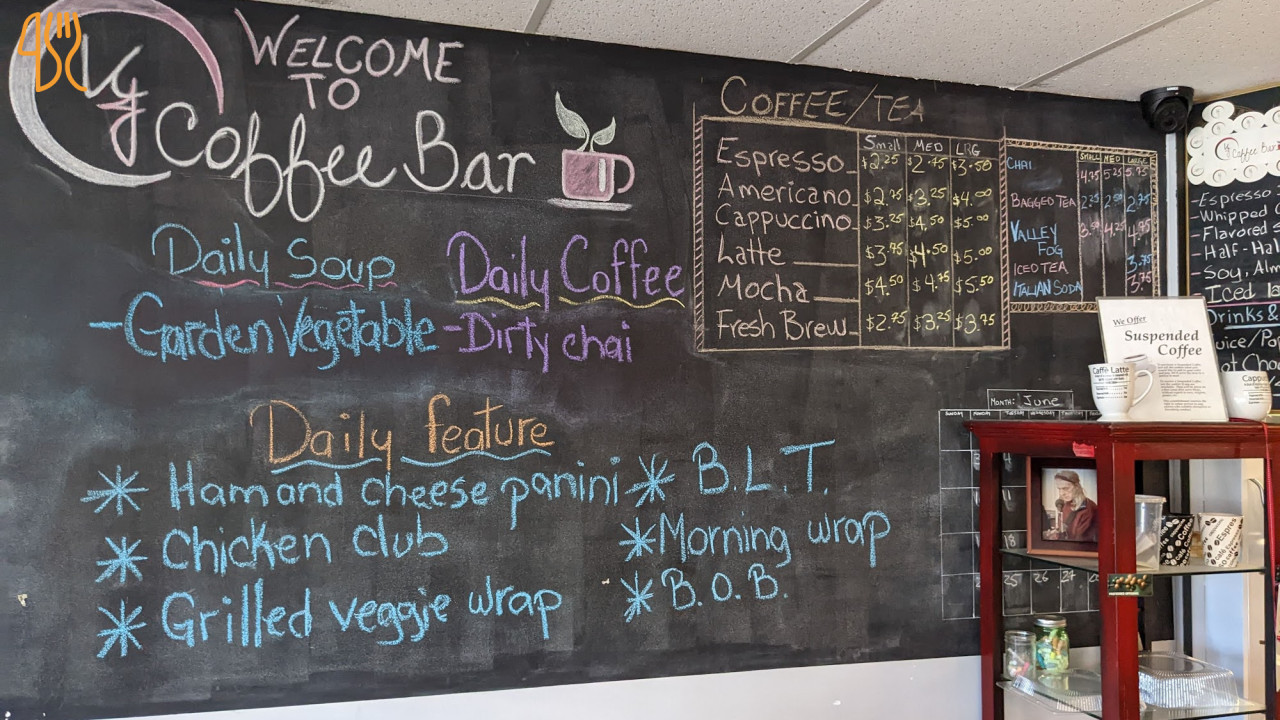 WELCOME
TO
Coffee Bar
Daily Soup
-Garden Vegetable
Daily Coffee
-Dirty chai
Daily feature
Ham and cheese panini
Chicken club
Grilled veggie wrap
B.L.T.
Morning wrap
B.O.B.
COFFEE/TEA
Small MED LRG
Espresso $2.25 $2.75 $3.50
Americano $2.75 $3.25 $4.00
Cappuccino $3.25 $4.50 $5.00
Latte $3.75 $4.50 $5.00
Mocha $4.50 $4.75 $5.50
Fresh Brew $2.75 $3.25 $3.75
SMALL MED LARGE
CHAI 4.75 5.25 5.75
BAGGED TEA 2.25 2.50 2.75
VALLEY
FOG 4.25 4.75
ICED TEA 3.75
ITALIAN SODA 3.75
Coffee Bar
-Espresso
-Whipped
-Flavored
-Half-Hal
-Soy, Alm
-Iced
Drinks &
We Offer
Suspended
Coffee
Caffè Latte
MONTH: June
SUNDAY MONDAY TUESDAY WEDNESDAY
18
25 26 27